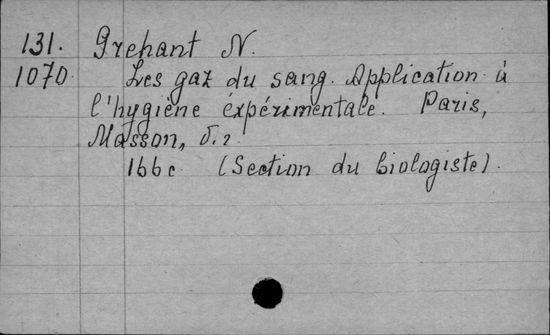 131. Grehant N.
1070. Les gaz du sang. Application à
l'hygiène éxpérimentale. Paris,
Masson, б.г.
166с (Section du biologiste).